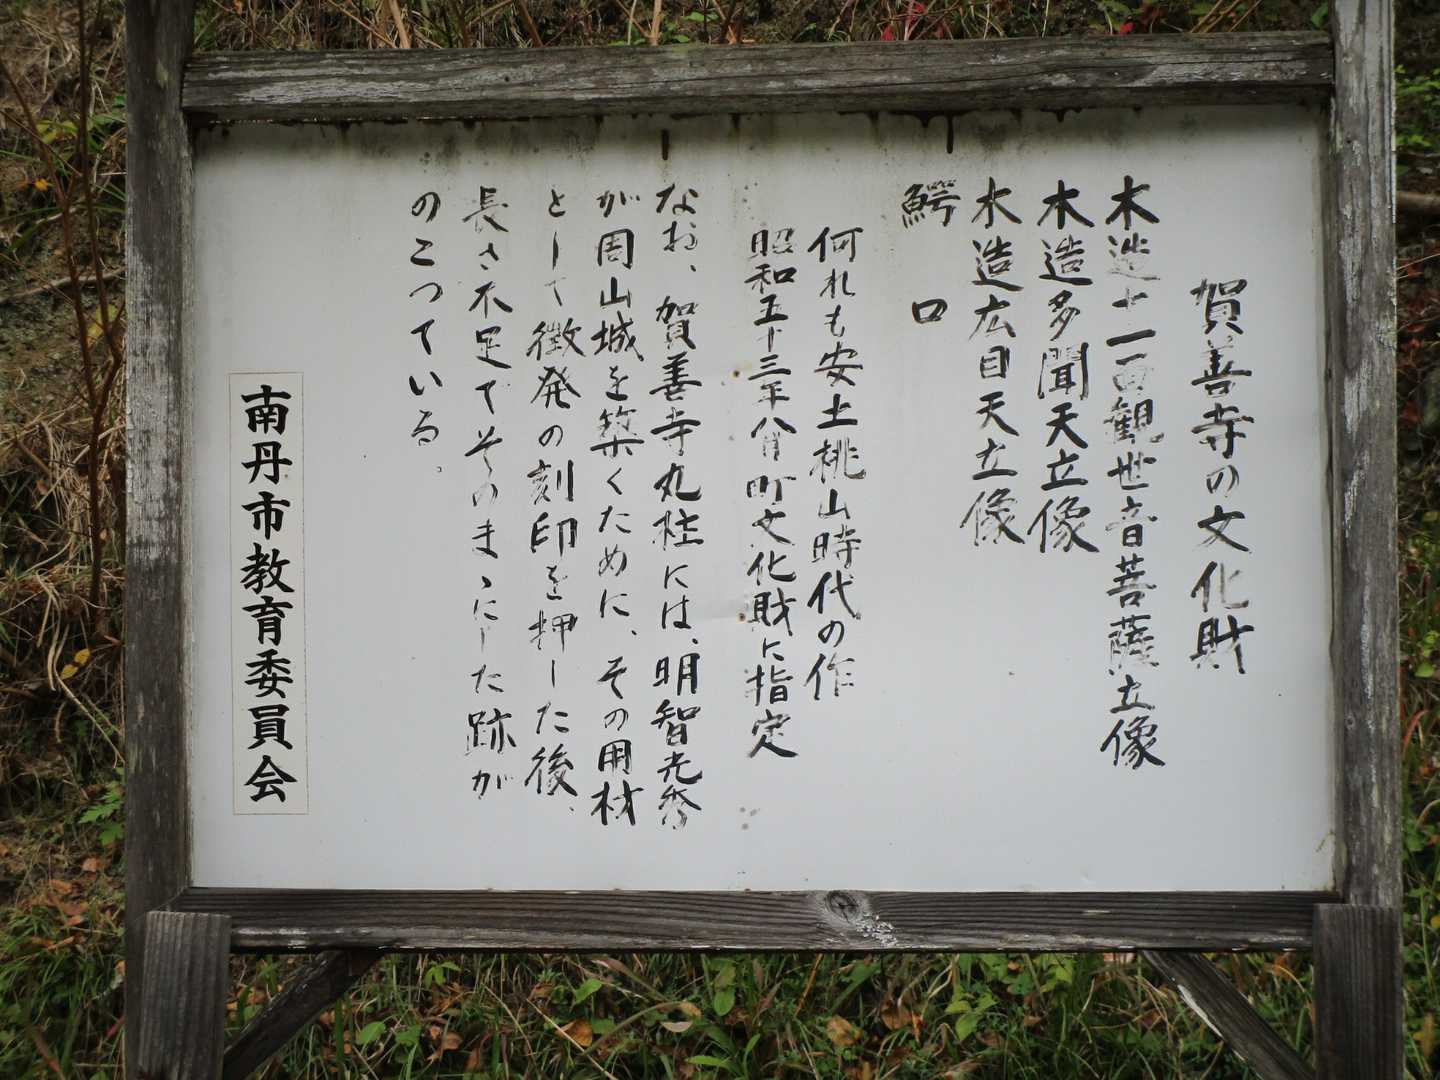 賀善寺の文化財
木造十一面観世音菩薩立像
木造多聞天立像
木造広目天立像
鰐口
何れも安土桃山時代の作
昭和五十三年八月町文化財に指定
なお、賀善寺丸柱には、明智光秀
が周山城を築くために、その用材
として徴発の刻印を押した後、
長さ不足でそのまゝにした跡が
のこっている。
南丹市教育委員会